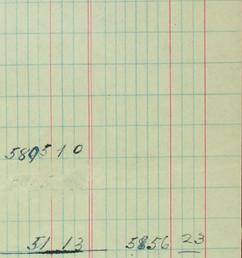 5805 10
51 13 5856 23